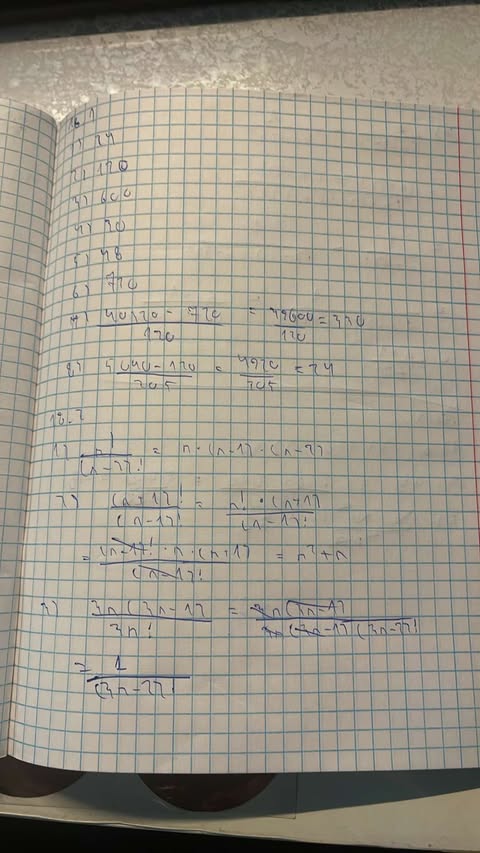 1) 24
2) 120
3) 600
4) 30
5) 48
6) 720
7) (40320 - 720)/120 = 39600/120 = 330
8) (5040 - 120)/205 = 4920/205 = 24
18.2
1) n!/(n-2)! = n · (n-1) · (n-2)
2) (n+1)!/(n-1)! = n! · (n+1)/(n-1)!
= (n-1)! · n · (n+1)/(n-1)! = n² + n
3) 3n(3n-1)/3n! = 3n(3n-1)/3n(3n-1)(3n-2)!
= 1/(3n-2)!